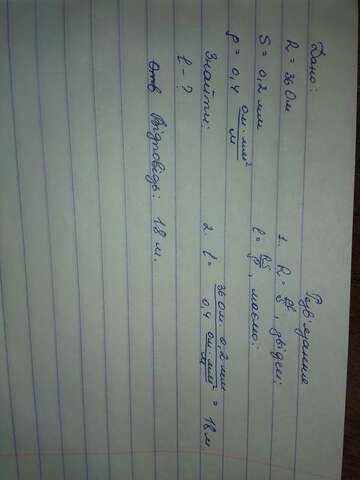 Дано:
R = 36 Ом
S = 0,2 мм
ρ = 0,4 Ом · мм² / м
Знайти:
l - ?
Розв'язання
1. R = ρl/S, звідси:
l = RS/ρ, маємо:
2. l = 36 Ом · 0,2 мм / 0,4 Ом · мм²/м = 18 м.
Відповідь: 18 м.